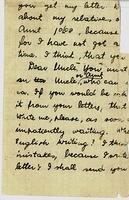 you get my letter h
about my relative, o
Aunt because
for I have not got a
me. I think, that yo
Dear Uncle. You must
or Aunt
an Uncle, who ca
va. If you would be in
it from your letters, that
write me, please, as soon
impatiently waiting. W
English writing? I think
mistakes, because I wrote
letter & I shall send you